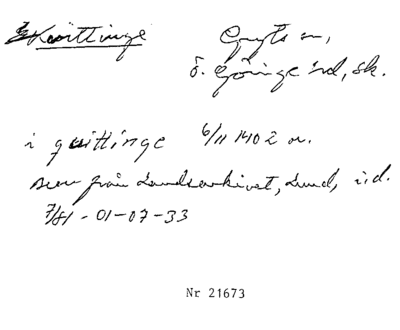 Skvittinge Gryts sn,
ö. Göinge hd, sk.
i quittinge 6/11 1402 or.
Brev från Landsarkivet, Lund, i d.
7/81-01-07-33
Nr 21673